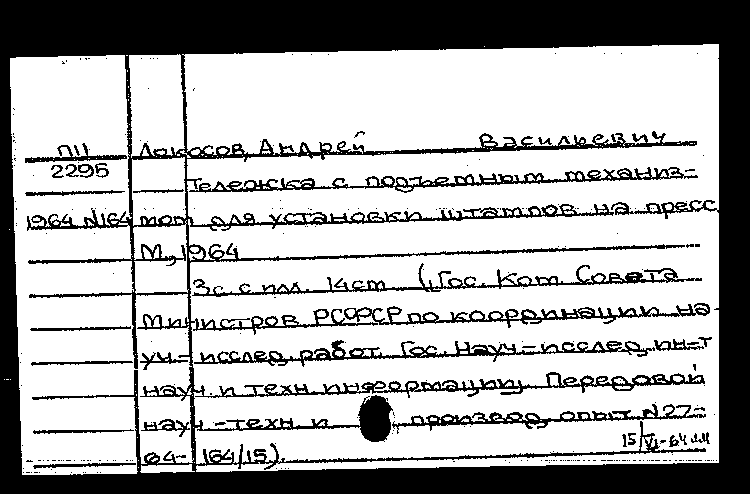 ПII Локосов, Андрей Васильевич
2295 Тележка с подъемным механиз-
1964 №164 мом для установки штампов на пресс.
М., 1964
3с. с илл. 14см (Гос. Ком. Совета
Министров РСФСР по координации на-
уч.-исслед. работ. Гос. Науч-исслед. ин-т
науч и техн информации. Передовой
науч-техн и производ. опыт №27-
64-164/15).
15/VI-64